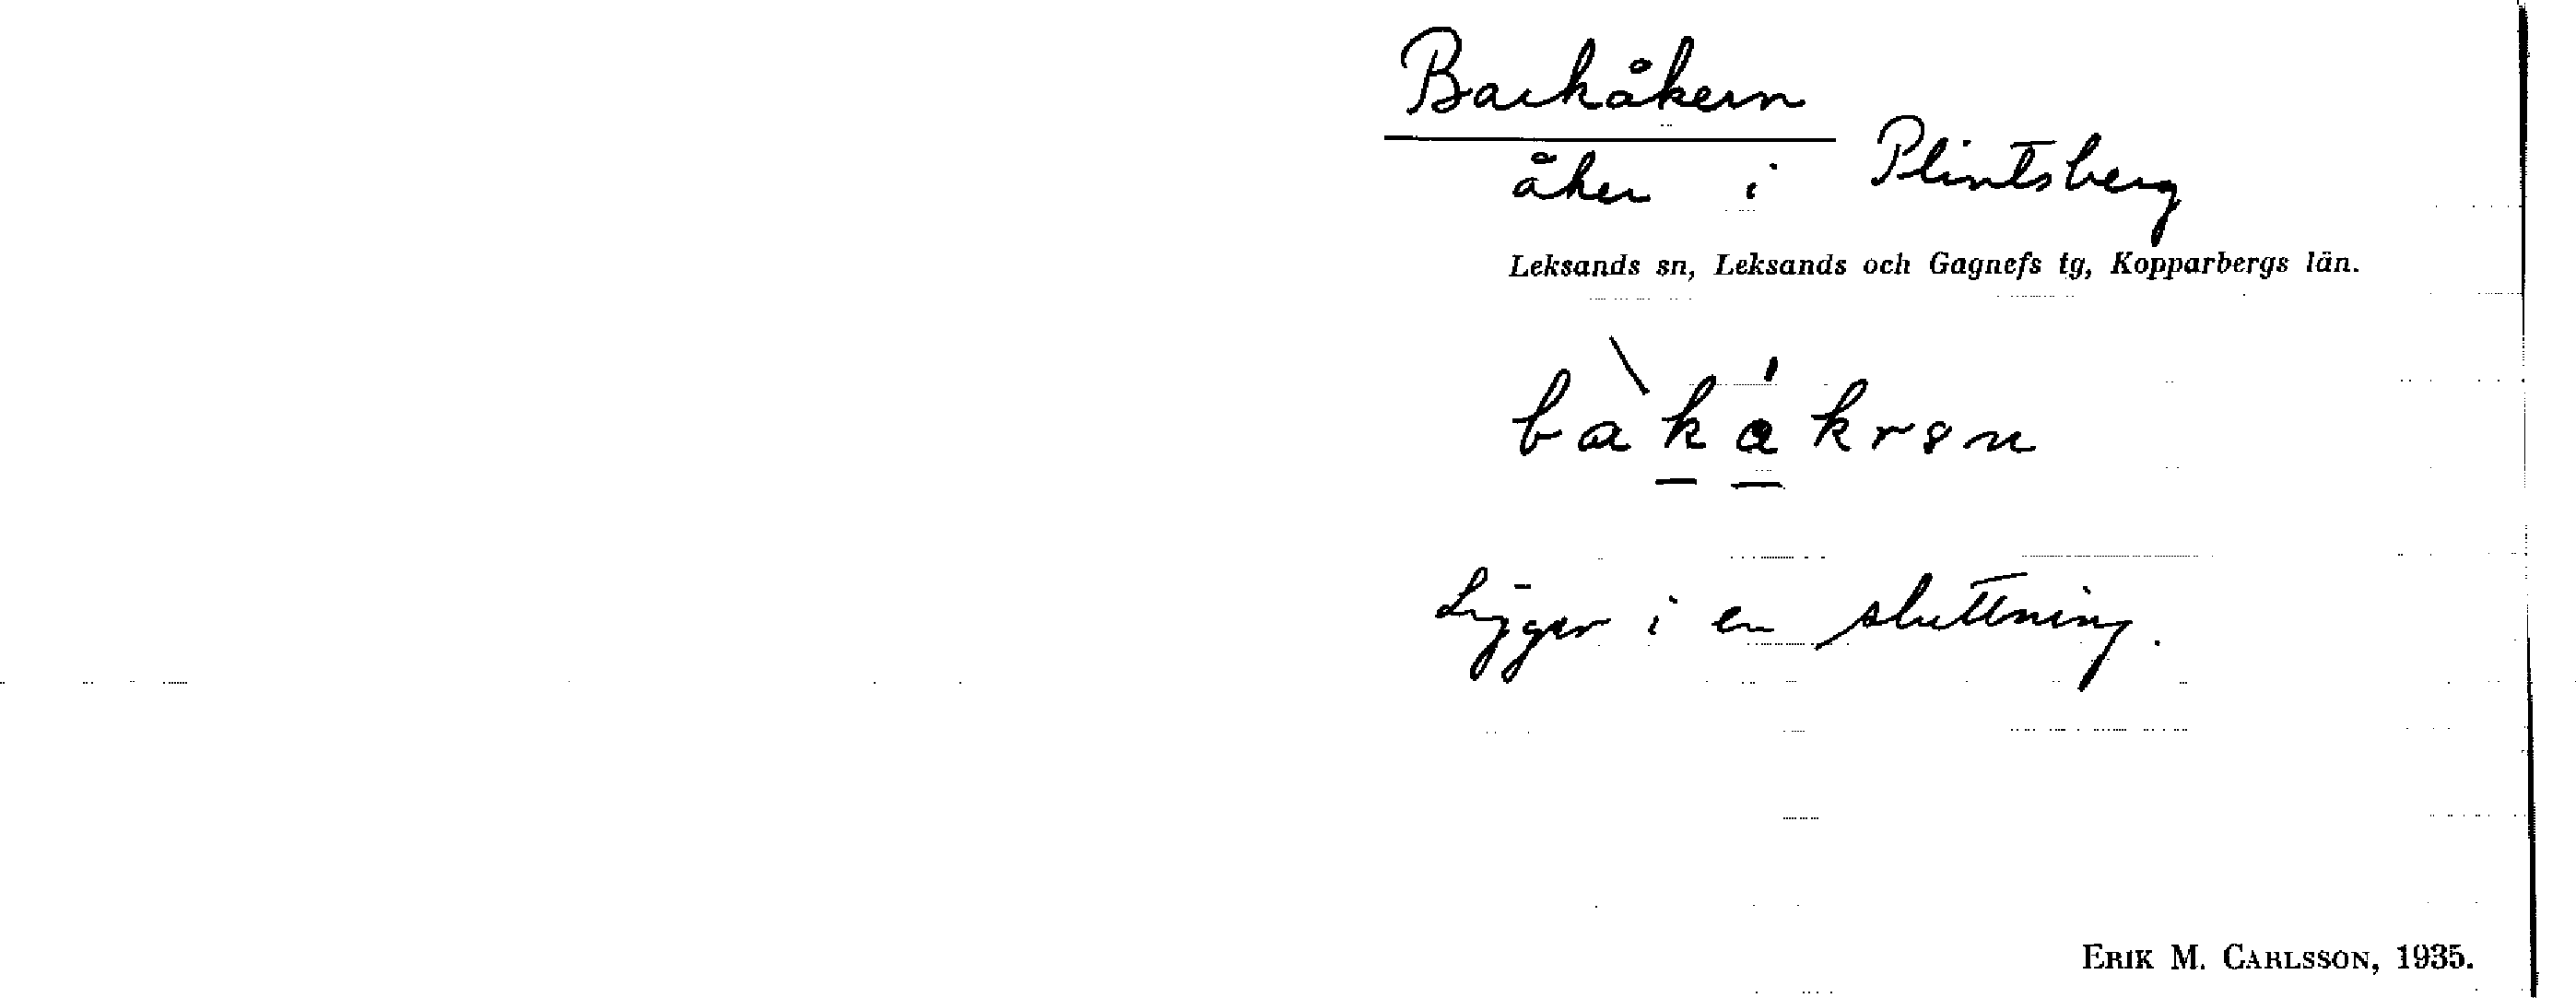 Backåkern
åker i Plintsberg
Leksands sn, Leksands och Gagnefs tg, Kopparbergs län.
Ligger i en sluttning.
ERIK M. CARLSSON, 1935.